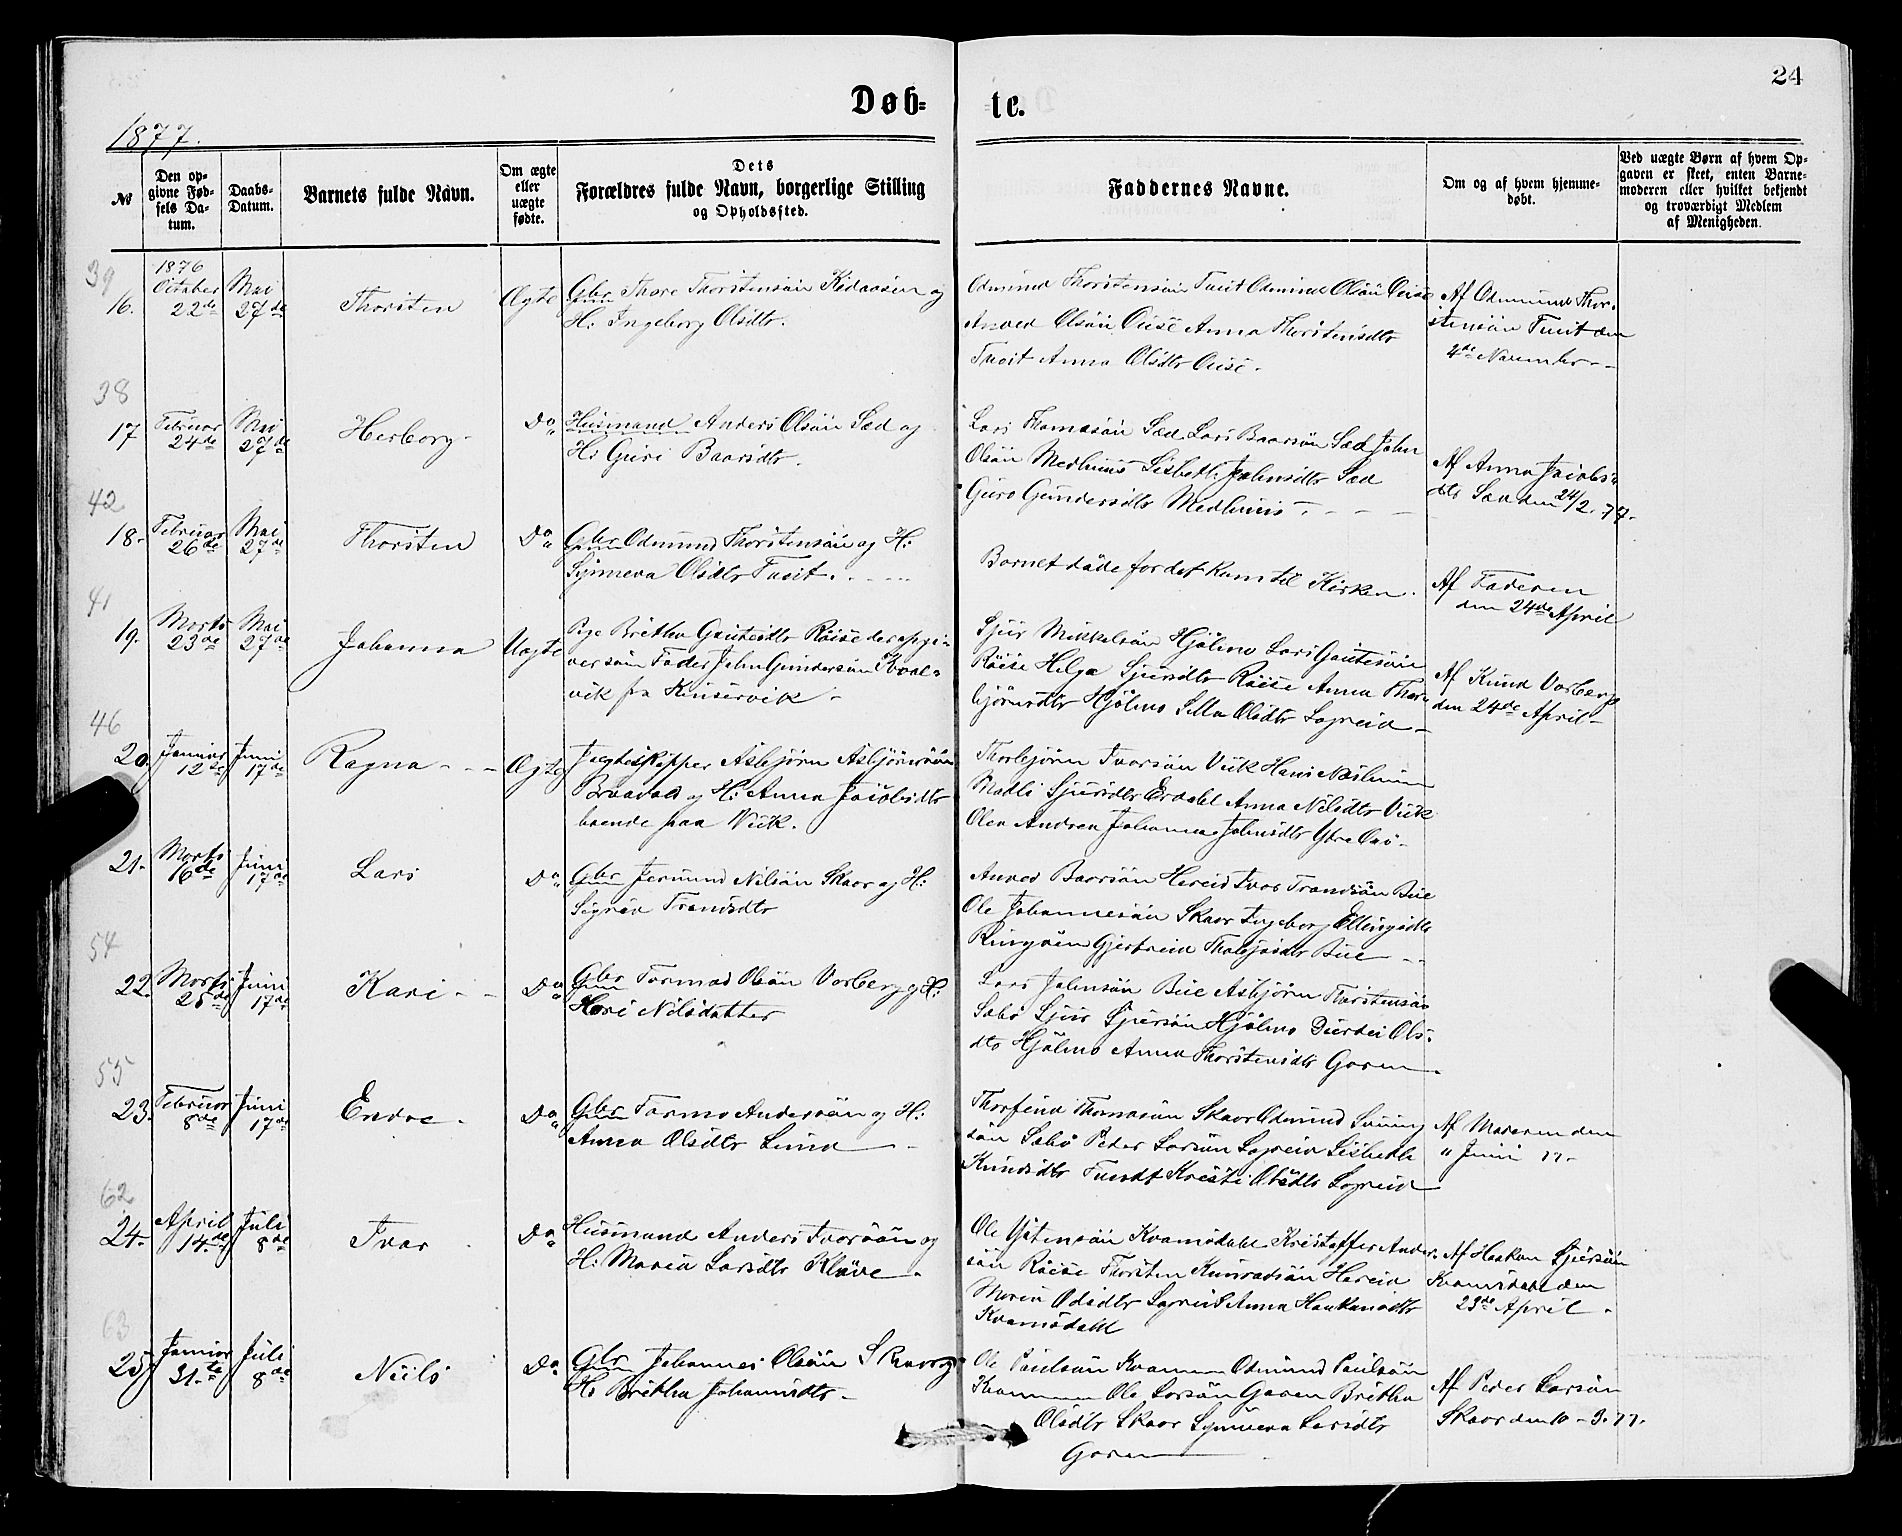 24
Døb-
te.
1877.
№
Den op-
givne Fød-
sels Da-
tum.
Daabs-
Datum.
Barnets fulde Navn.
Om ægte
eller
uægte
fødte.
Dets
Forældres fulde Navn, borgerlige Stilling
og Opholdssted.
Faddernes Navne.
Om og af hvem hjemme-
døbt.
Ved uægte Børn af hvem Op-
gaven er skeet, enten Barne-
moderen eller hvilket bekjendt
og troværdigt Medlem
af Menigheden.
39
16.
1876
October
22de
Mai
27de
Thorsten
Ægte
Gbr Thore Thorstensön og
H: Ingeborg Olsdtr.
Odmund Thorstensön Tveit Odmund Olsön
Olsön Anna Thorstensdtr
Tveit Anna Olsdtr
Af Odmund Thor-
stensön Tveit den
4de November
38
17
Februar
24de
Mai
27de
Herborg
Do
Husmand Anders Olsön Sæd og
H: Guri Baarsdtr.
Lars Thomasön Sæd Lars Baarsön Sæd John
Olsön Medhuus Lisbeth Johnsdtr Sæd
Guro Gundersdtr Medhuus
Af Anna Jacobs-
dtr Sæd den 24/2. 77.
42
18.
Februar
26de
Mai
27de
Thorsten
Do
Gbr Odmund Thorstensön og H:
Synneva Olsdtr Tveit.
Barnet döde for det kom til Kirken.
Af Faderen
den 24de April
41
19.
Marts
23de
Mai
27de
Johanna
Uægte
Pige Britha Gautesdtr Röise der opgi-
ver som Fader John Gundersön Kval-
vik fra Kinservik
Sjur Mikkelsön Hjölmo Lars Gautesön
Röise Helga Sjursdtr Röise Anna Thor-
björnsdtr Hjölmo Silla Olsdtr Legreid
Af Knud Vorberg
den 24de April
46
20.
Januar
12te
Juni
17de
Ragna
Ægte
Jægtskipper Asbjörn Asbjörnsön
Bravold og H: Anna Jacobsdtr
boende paa Viik.
Thorbjörn Ivarsön Viik Hans Næshiim
Madli Sjursdtr Erdahl Anna Nilsdtr Viik
Olea Andrea Johanna Johnsdtr Ytre
21.
Marts
16de
Juni
17de
Lars
Do
Gbr Jermund Nilsön Skaar og H:
Sigrid Trondsdtr
Anved Baarsön Hereid Ivar Trondsön Bue
Ole Johannesön Skaar Ingeborg Ellingsdtr
Ringöen Gjertreid Bue
54
22.
Marts
25de
Juni
17de
Kari
Do
Gbr Tormod Olsön Vorberg og H:
Kari Nilsdatter
Lars Johnsön Bue Asbjörn Thorstensön
Sæbö Sjur Sjursön Hjölmo Durdei Ols-
dtr Hjölmo Anna Thorstensdtr Garen
55
23.
Februar
8de
Juni
17de
Endre
Do
Gbr Tormo Andersön og H:
Anna Olsdtr Lund
Thorfind Thomasön Skaar Odmund
sön Sæbö Peder Larsön Legreid Lisbeth
Knudsdtr Kristi Olsdtr Legreid
Af Moderen den
" Juni 77.
62
24.
April
14de
Juli
8de
Ivar
Do
Husmand Anders Ivarsön og
H: Maria Larsdtr Klöve
Ole Östensön Kvamsdahl Kristoffer Ander-
sön Röise Thorsten Konradsön Hereid
Legreid Anna Haakonsdtr
Kvamsdahl
Af Haakon Sjursön
Kvamsdahl den
23de April
63
25.
Januar
31te
Juli
8de
Niils
Do
Gbr Johannes Olsön Skaar og
H: Britha Johannsdtr
Ole Paulsön Kvammen Odmund Paulsön
Kvammen Ole Larsön Garen Britha
Olsdtr Skaar Synneva Larsdtr
Garen
Af Peder Larsön
Skaar den 10-3.77.